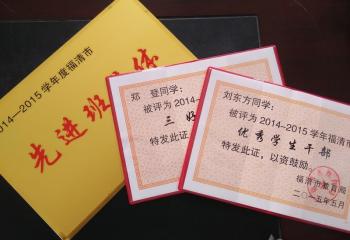 2014—2015学年度福清市
先进班集体
郑 登同学：
被评为2014—
三好
特发此证，
刘东方同学：
被评为2014—2015学年福清市
优秀学生干部
特发此证，以资鼓励。
福清市教育局
二〇一五年五月